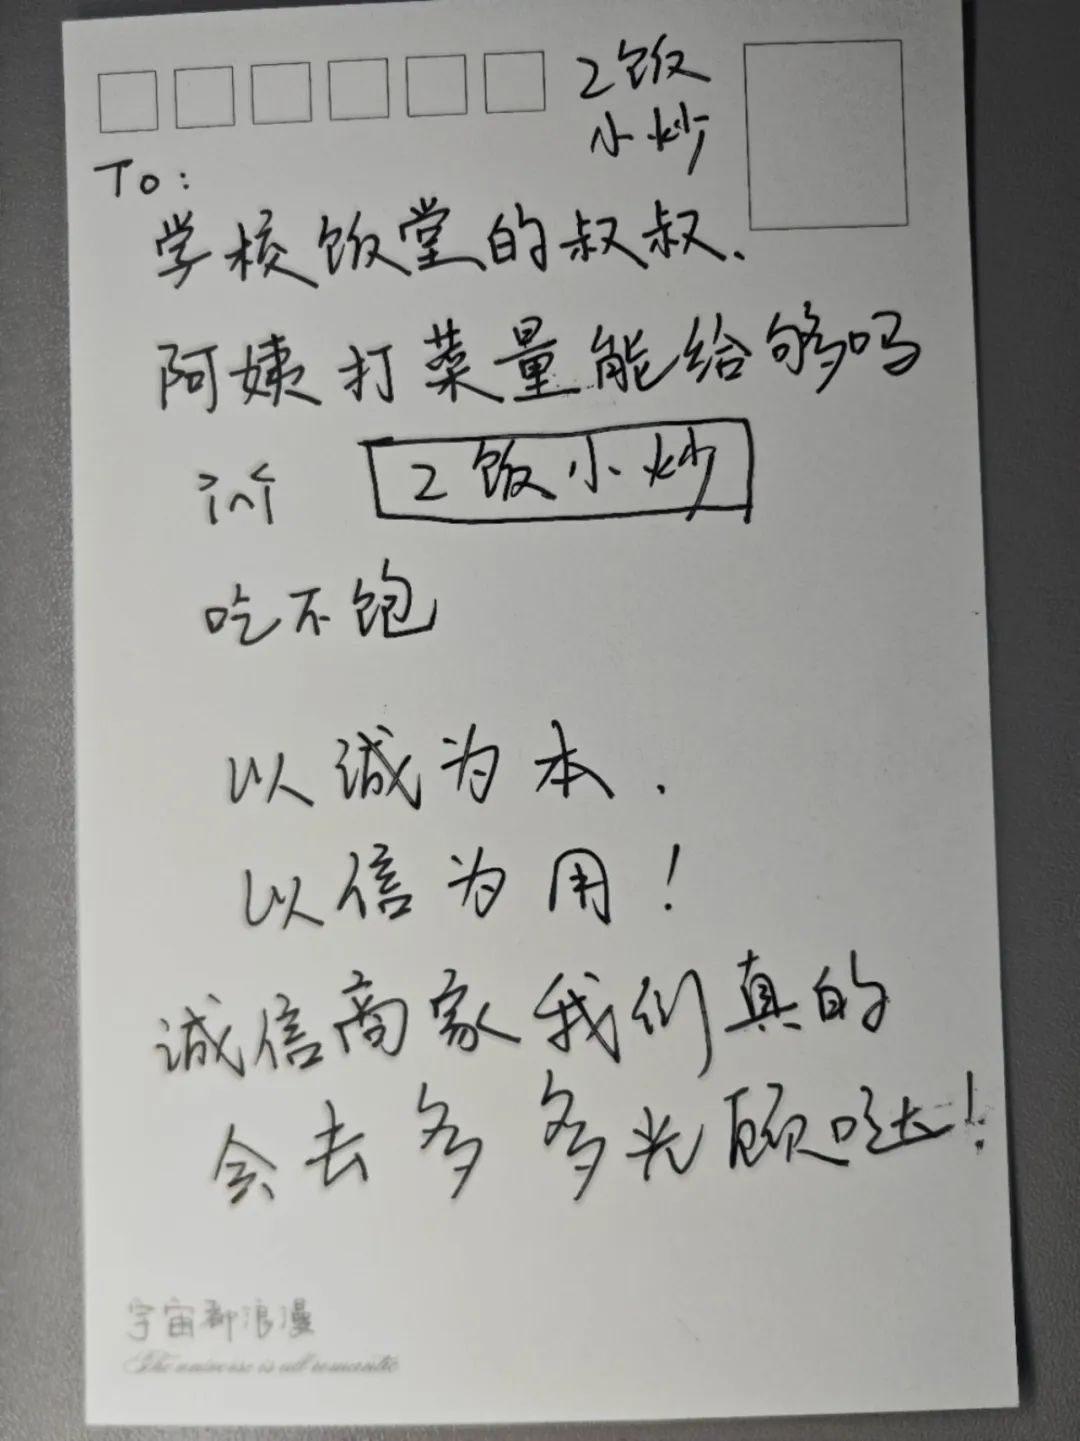 2饭
小炒
To:
学校饭堂的叔叔、
阿姨打菜量能给够吗
2饭小炒
吃不饱
以诚为本.
以信为用!
诚信商家我们真的
会去多多光顾哒!
宇宙都浪漫
The universe is all romantic